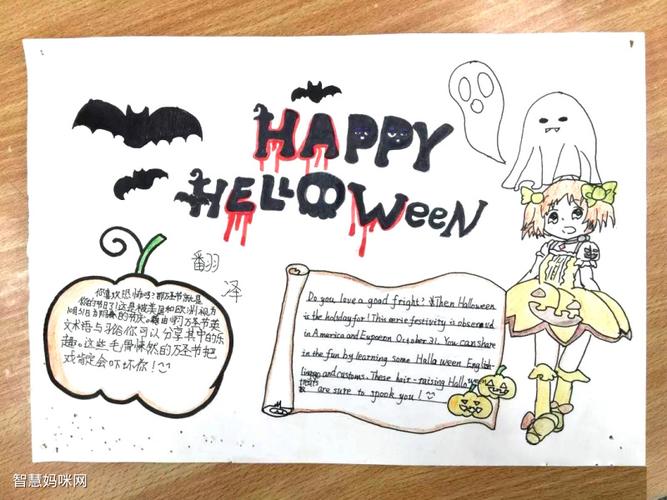 HAPPY
HELLOWeeN
翻
泽
你喜欢恐怖吗?那万圣节就是
你的节日了!这是被美国和欧洲视为
10月31日为的节庆。藉由学习万圣节英
文术语与风俗你可以分享其中的乐
趣。这些毛骨悚然的万圣节把
戏肯定会吓坏你!
Do you love a good fright? Then Halloween
is the holiday for! This eerie festivity is observed
in America and Europe on October 31. You can share
in the fun by learning some Halloween English
lingo and customs. These hair-raising Halloween
treats
are sure to spook you!
智慧妈咪网